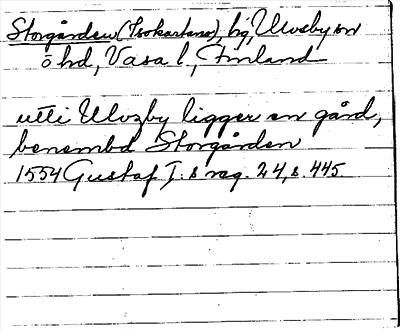 Storgården (Isokartano), by, Ulvsby sn
ö hd, Vasa l., Finland
utti Ulvzby ligger en gård,
benembd Storgården
1554 Gustaf I:s reg. 24, s. 445